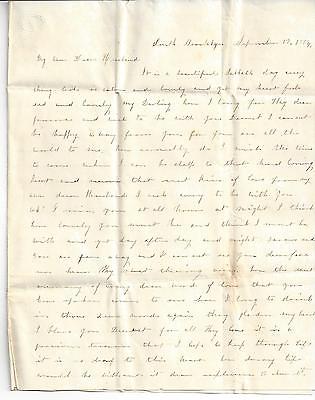 South Brooklyn September 17, 18
My own Dear Husband
It is a beautiful Sabbath day every
thing looks so calm and lovely and yet my heart feels
sad and lonely, My Darling how I long for Thy dear
presence and wish to be with you Dearest I cannot
be happy away from you for you are all the
world to me. How earnestly do I wish the time
to come when I can be clasped to that loving
heart and receive that sweet kiss of love from my
own dear Husband I wish to be with you
I miss you at all hours at night I think
how lonely you must be and think I must be
with and yet day after day and night
you are far away and I can not see your dear face
or hear Thy voice the dear
of every dear word of love that you
have spoken to me how I long to drink
in those dear words again they my heart
I bless you Dearest for all Thy love it is a
precious treasure that I hope to keep through life
it is so dear to this heart be dreary life
would be without it dear